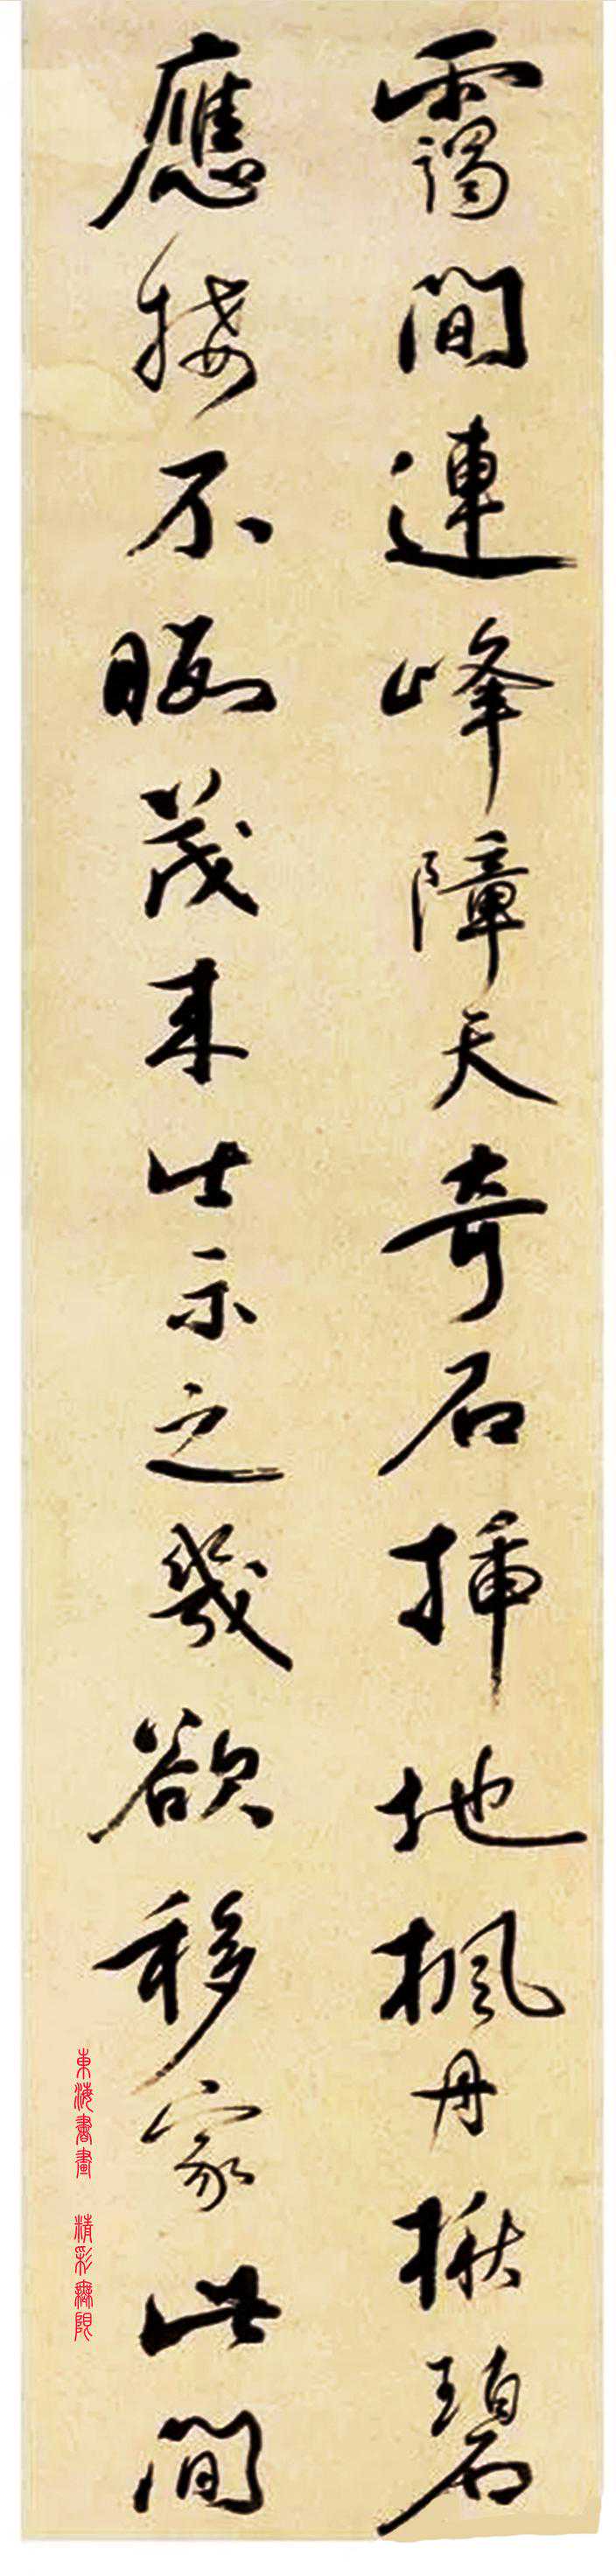 靄間連峰障天奇石插地楓丹楸碧
應接不暇茂来此示之幾欲移家此間
東海書畫 精彩無限